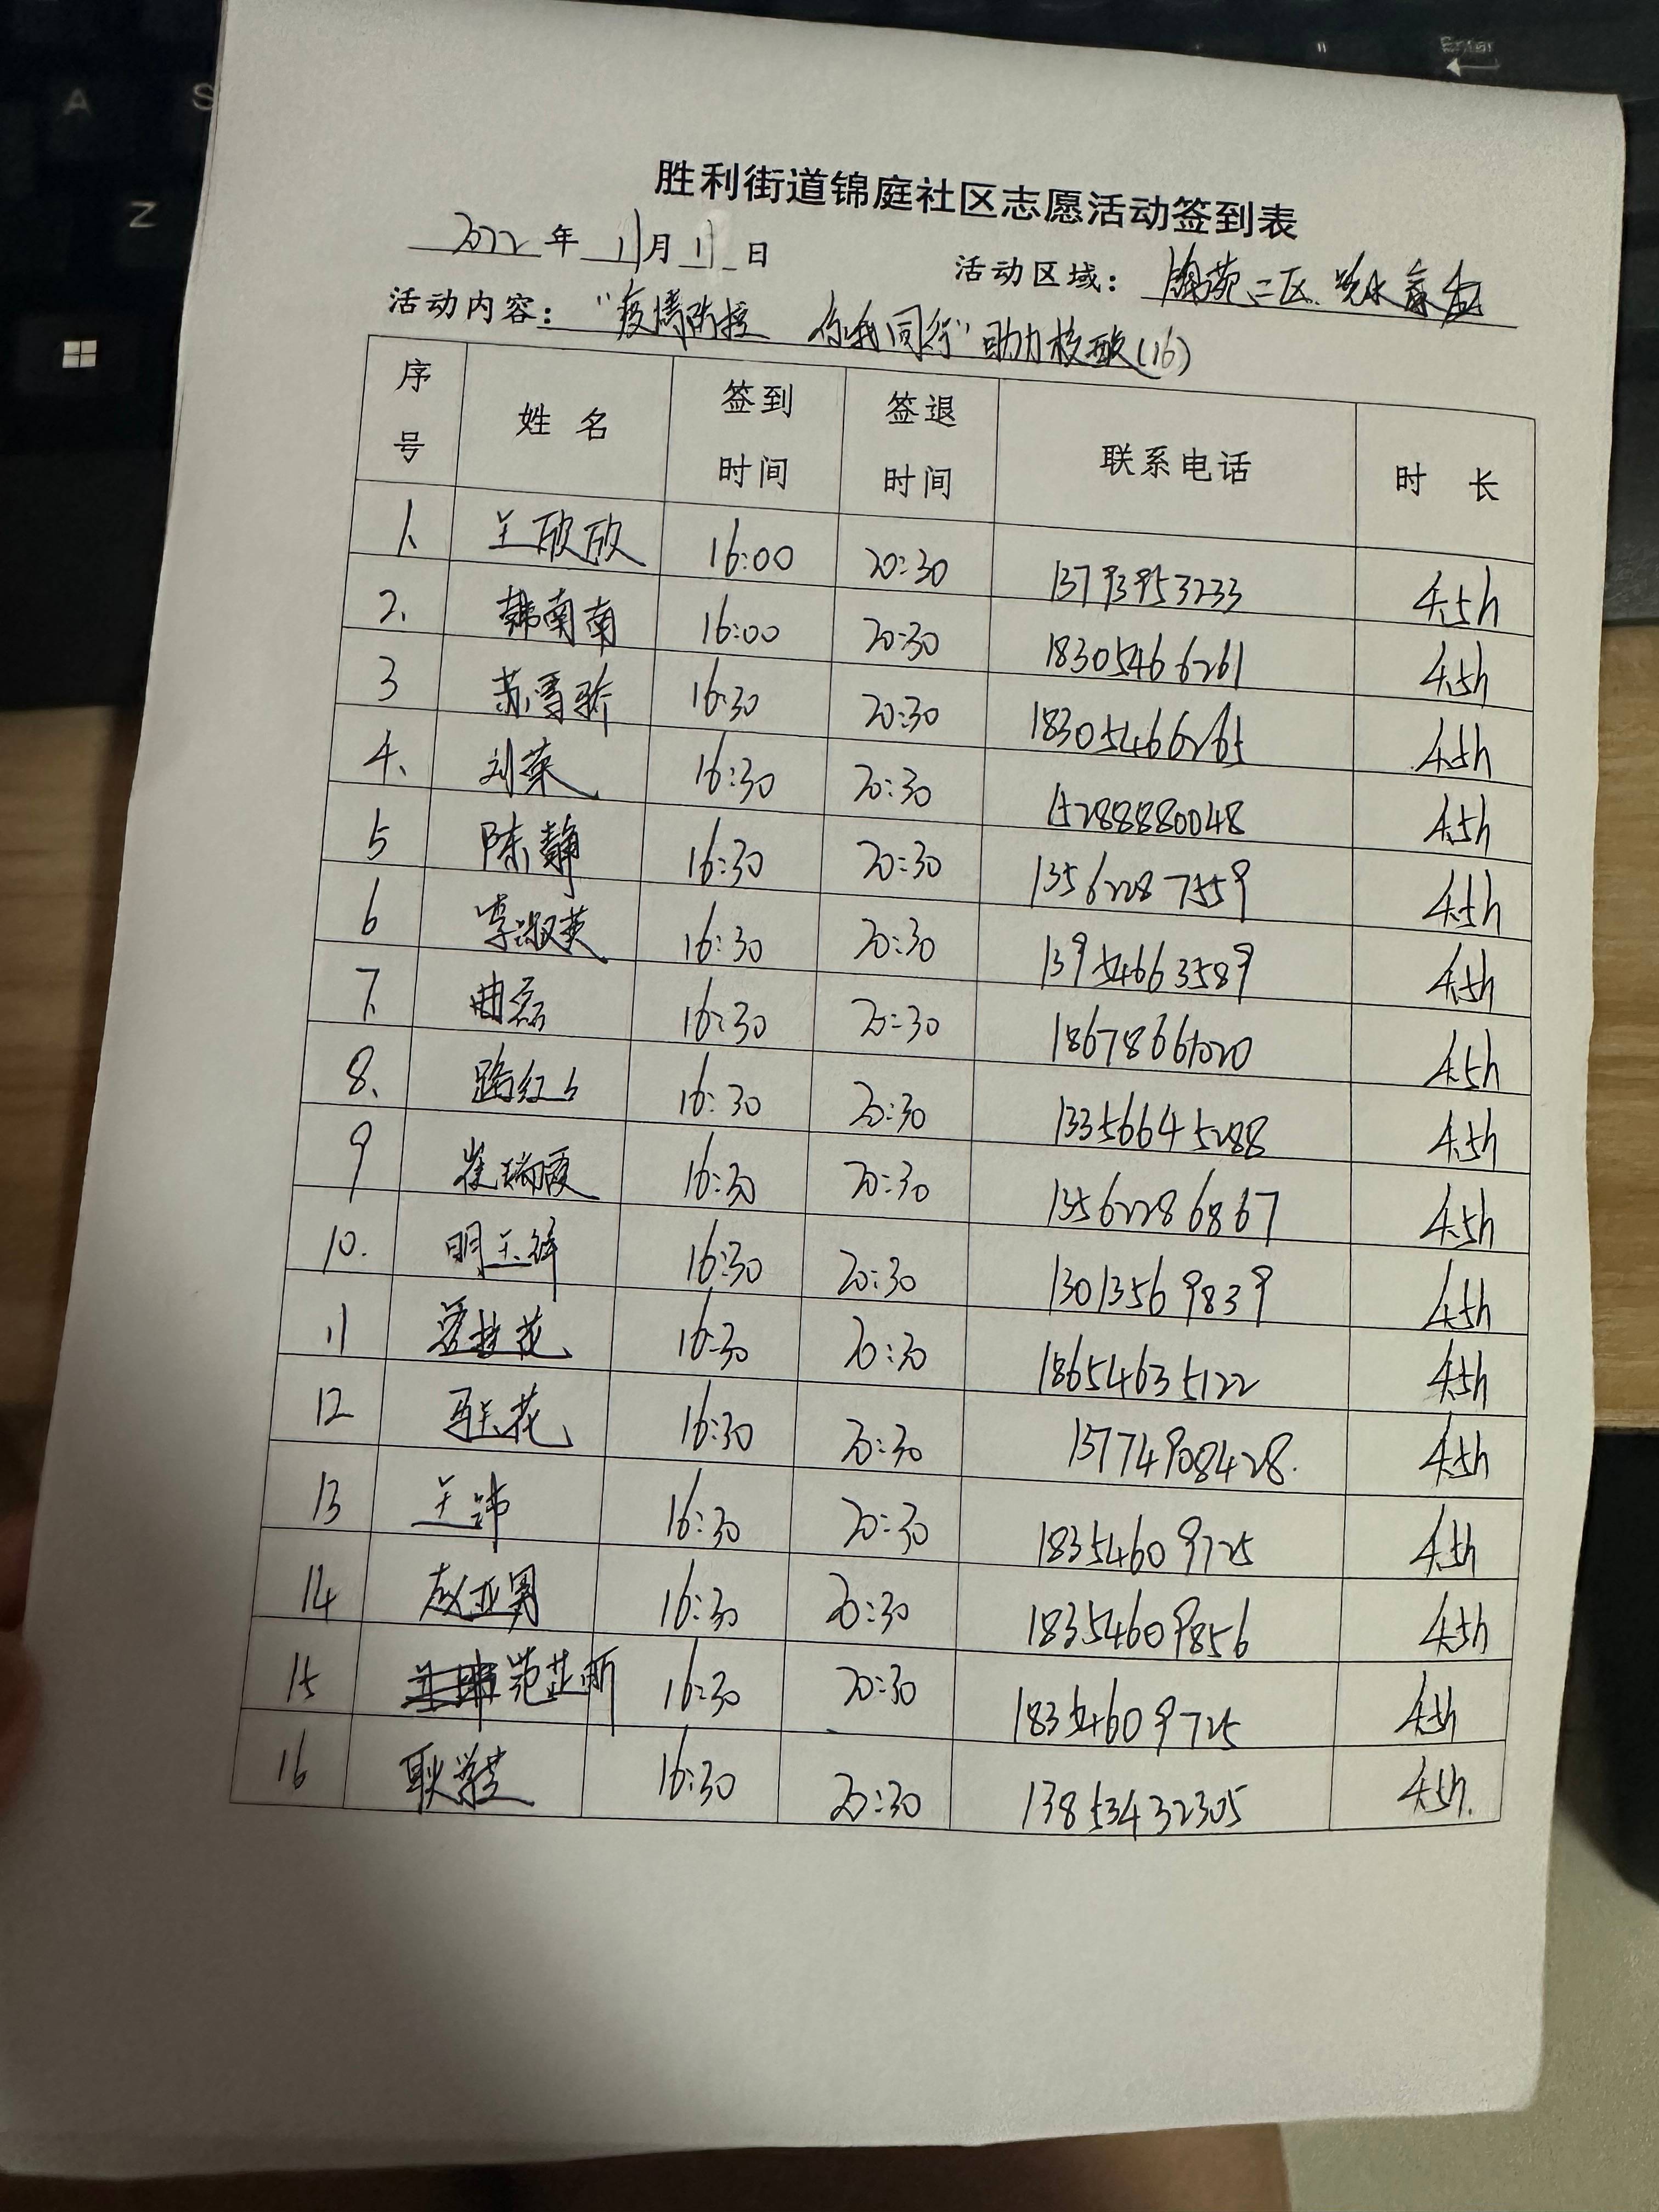 A S Z " Enter
胜利街道锦庭社区志愿活动签到表
2022年 11月 11日 活动区域: 锦苑二区
活动内容: "疫情防控 你我同行"助力核酸(16)
序号 姓名 签到时间 签退时间 联系电话 时长
1、 王欣欣 16:00 20:30 13793953233 4.5h
2. 韩南南 16:00 20:30 18305466261 4.5h
3 苏雪娇 16:30 20:30 18305466265 4.5h
4、 刘荣 16:30 20:30 15288880048 4.5h
5 陈静 16:30 20:30 13562287559 4.5h
6 李淑英 16:30 20:30 13954663589 4.5h
7、 曲磊 16:30 20:30 4.5h
8、 路红 16:30 20:30 13356645288 4.5h
9 崔瑞霞 16:30 20:30 13562286867 4.5h
10. 明玉祥 16:30 20:30 13013569839 4.5h
11 花 16:30 20:30 18654635122 4.5h
12 花 16:30 20:30 15774908428. 4.5h
13 王 16:30 20:30 18354609725 4.5h
14 赵亚男 16:30 20:30 18354609856 4.5h
15 范芷昕 16:30 20:30 18354609725 4.5h
16 耿 16:30 20:30 13853432305 4.5h.